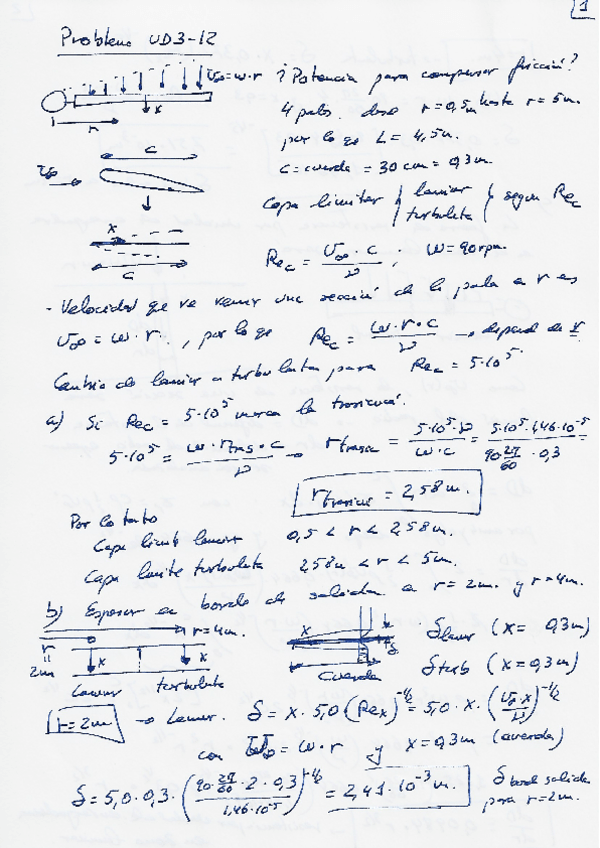 1
Problema UD3-12
U∞=ω·r ¿Potencia para compensar fricción?
x
r
4 palas. desde r=0,5m hasta r=5m.
por lo que L=4,5m.
c
U∞
c=cuerda=30cm=0,3m.
Capa límite laminar turbulenta según Rec
x
c
Rec = U∞·c/ν ; ω=90rpm.
- Velocidad que ve venir una sección de la pala a r es
U∞=ω·r., por lo que Rec = ω·r·c/ν → depend de r.
Cambio de laminar a turbulenta para Rec=5·10⁵.
a) Si Rec=5·10⁵ marca la transición.
5·10⁵ = ω·rtras·c/ν → rtrans = 5·10⁵·ν/ω·c = 5·10⁵·1,46·10⁻⁵/90 2π/60 ·0,3 =
rtransic = 2,58m.
Por lo tanto
Capa límite laminar 0,5<r<2,58m.
Capa límite turbulenta 2,58m<r<5m.
b) Espesor en borde de salida a r=2m. y r=4m.
r=4m.
r
=
2m
x
x
Laminar turbulenta
x
δ
Cuerda
δlamr (x=0,3m)
δturb (x=0,3m)
r=2m → Laminar. δ=x·5,0(Rex)^-1/2=5,0·x·(U∞·x/ν)^-1/2
con U∞=ω·r y x=0,3m (cuerda)
δ=5,0·0,3·(90 2π/60 ·2·0,3/1,46·10⁻⁵)^-1/2 = 2,41·10⁻³m.
δ borde salida
para r=2m.